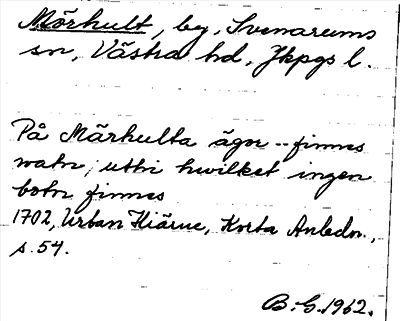 Mörhult, by, Svenarums
sn, Västra hd, Jkpgs l.
På Mårhulta ägor -- finnes
watn, uthi hwilket ingen
botn finnes
1702, Urban Hiärne, Korta Anledn.,
s. 54.
B.G. 1962.